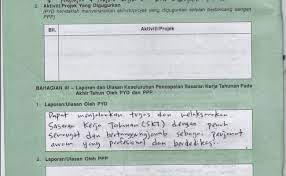 2. Aktiviti/Projek Yang Digugurkan
(PYD hendaklah menyenaraikan aktiviti/projek yang digugurkan setelah berbincang dengan
PPP)
Bil. Aktiviti/Projek
BAHAGIAN III – Laporan dan Ulasan Keseluruhan Pencapaian Sasaran Kerja Tahunan Pada
Akhir Tahun Oleh PYD dan PPP
1. Laporan/Ulasan Oleh PYD
Dapat menjalankan tugas dan melaksanakan
Sasaran Kerja Tahunan (SKT) dengan penuh
semangat dan bertanggungjawab sebagai penjawat
awam yang profesional dan berdedikasi.
2. Laporan/Ulasan Oleh PPP